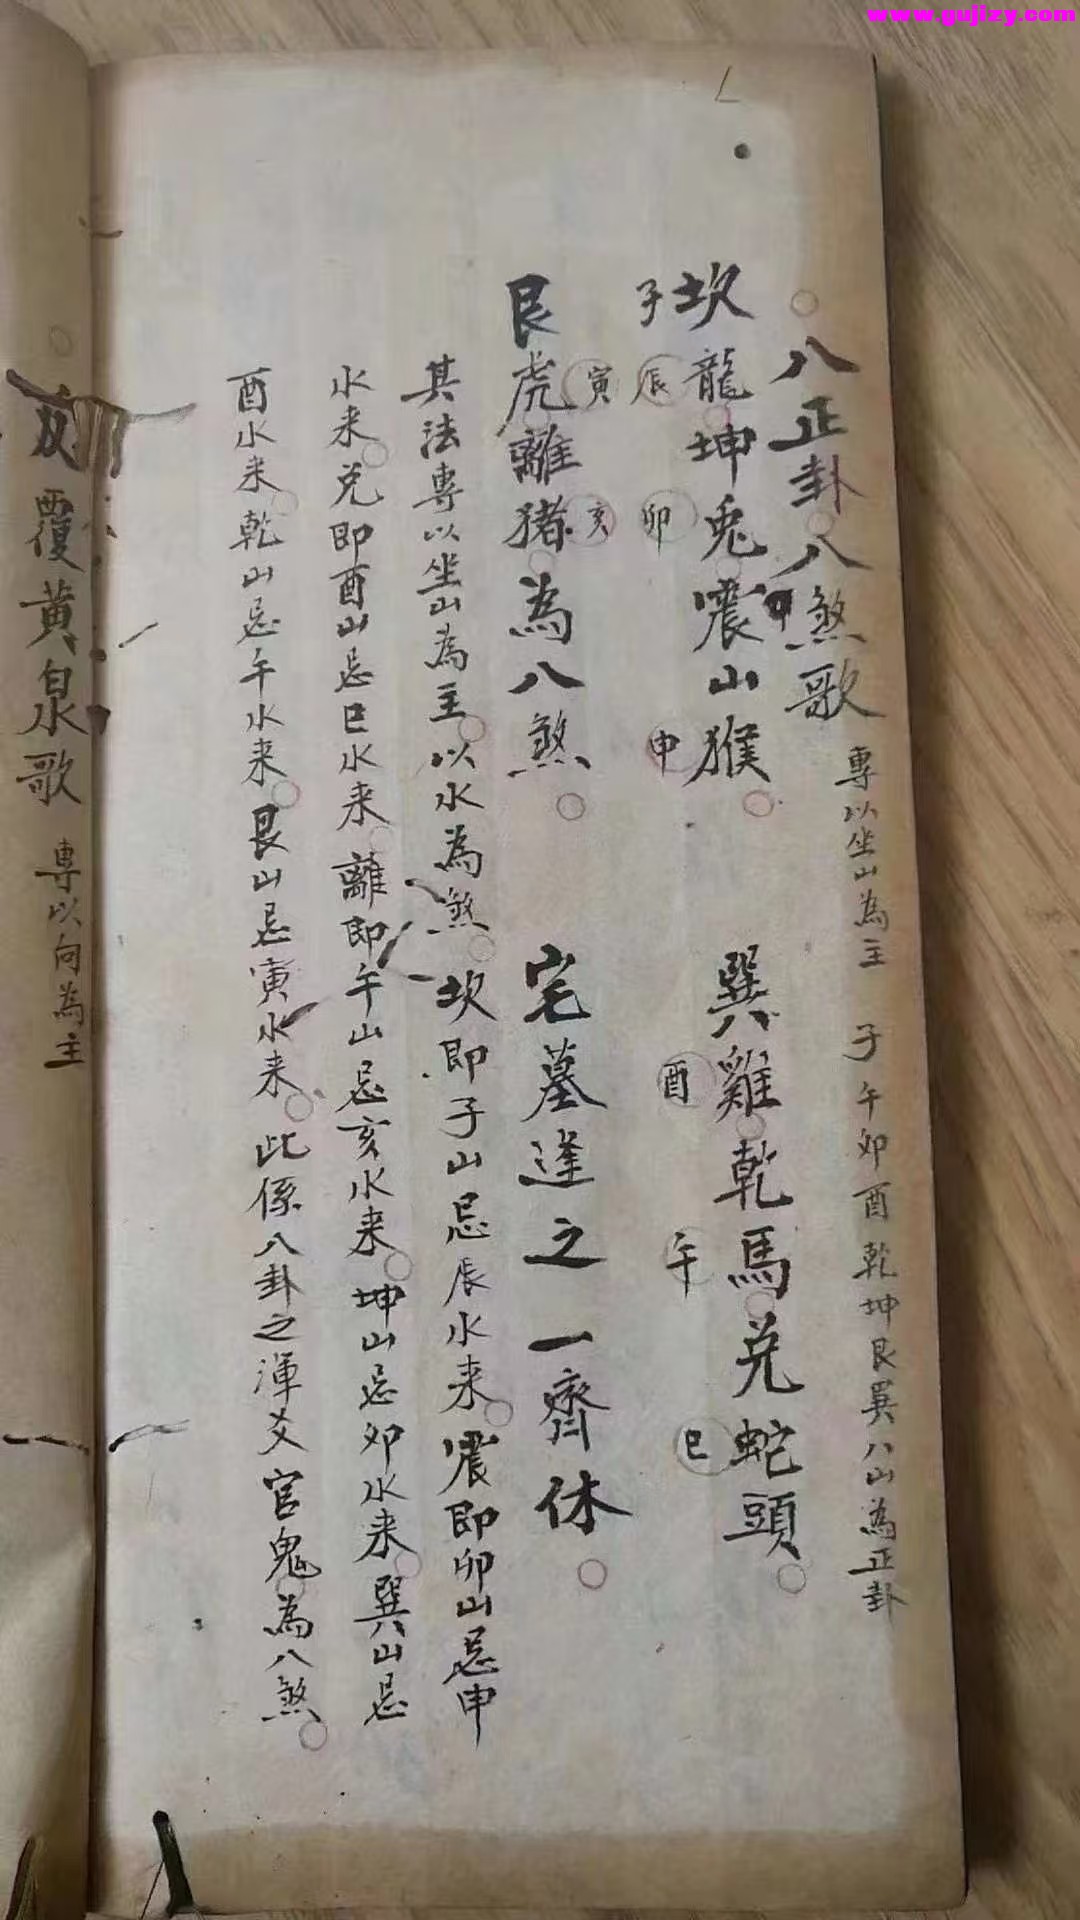 www.gujizy.com
八正卦八煞歌 專以坐山為主 子午卯酉乾坤艮巽八山為正卦
坎龍坤兎震山猴 巽雞乾馬兌蛇頭
子辰卯申酉午巳
艮虎離猪為八煞 宅墓逢之一齊休
寅亥
其法專以坐山為主以水為煞坎即子山忌辰水来震即卯山忌申
水来兌即酉山忌巳水来離即午山忌亥水来坤山忌卯水来巽山忌
酉水来乾山忌午水来艮山忌寅水来此係八卦之渾爻官鬼為八煞
反覆黄泉歌 專以向為主